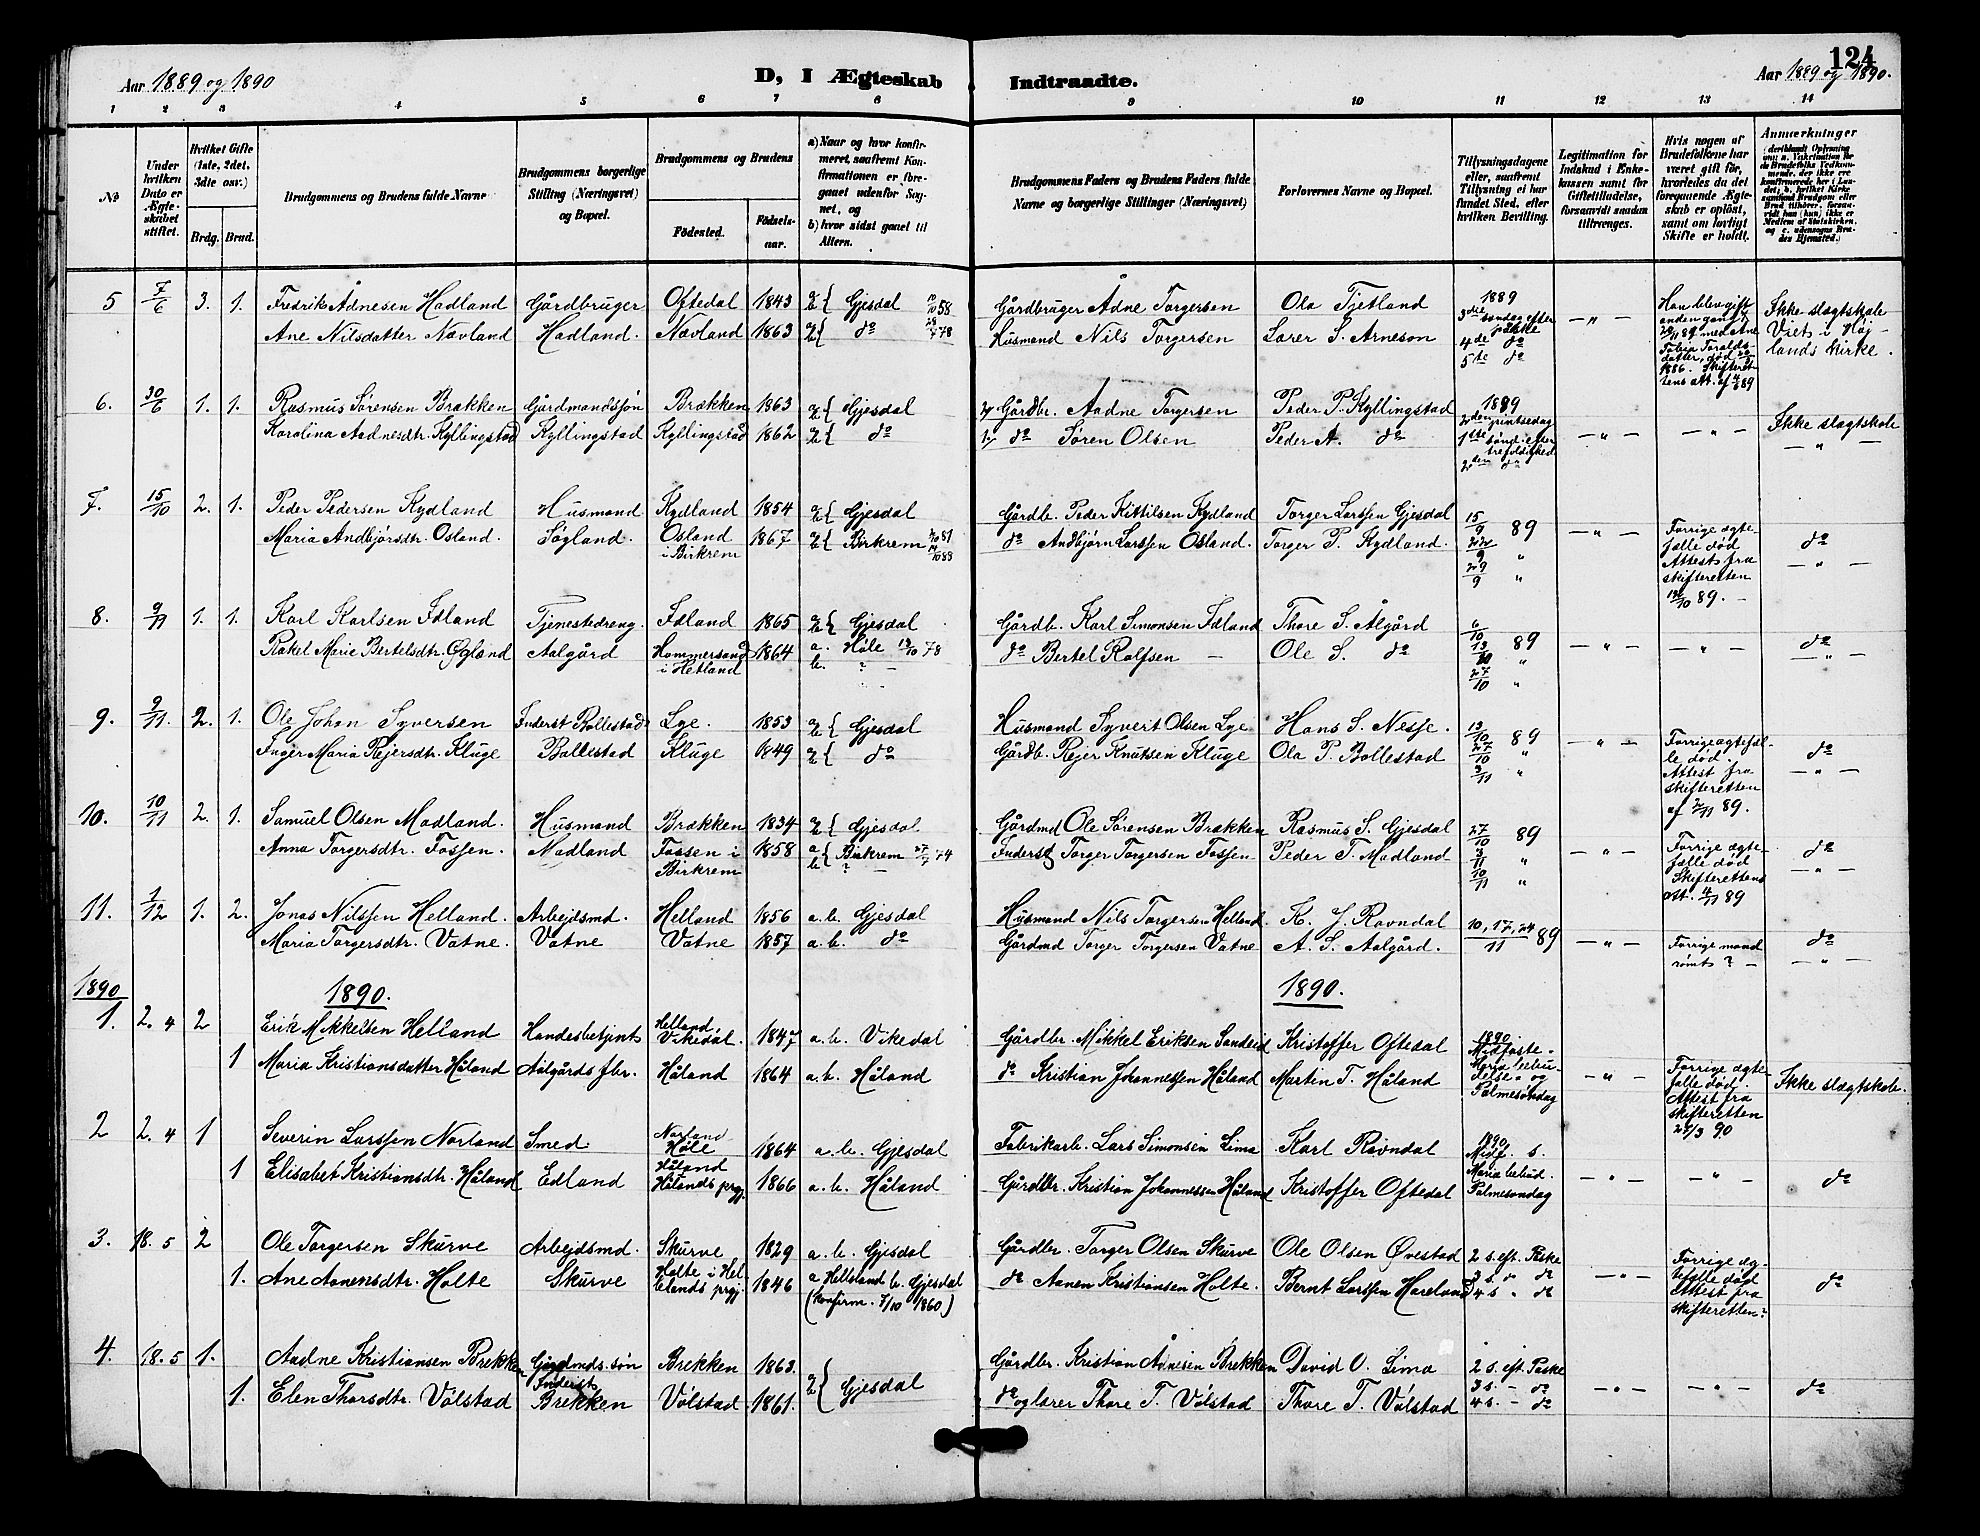 124
Aar 1889 og 1890
D, I Ægteskab Indtraadte.
Aar 1889 og 1890.
1 2 3 4 5 6 7 8 9 10 11 12 13 14
№
Under hvilken Dato er Ægteskabet stiftet.
Hvilket Gifte (1ste, 2det, 3die osv.)
Brdg. Brud.
Brudgommens og Brudens fulde Navne
Brudgommens borgerlige Stilling (Næringsvei) og Bopæl.
Brudgommens og Brudens
Fødested.
Fødselsaar.
a) Naar og hvor konfirmeret, saafremt Konfirmationen er foregaaet udenfor Sognet, og
b) hvor sidst gaaet til Altern.
Brudgommens Faders og Brudens Faders fulde Navne og borgerlige Stillinger (Næringsvei)
Forlovernes Navne og Bopæl.
Tillysningsdagene eller, saafremt Tillysning ei har fundet Sted, efter hvilken Bevilling.
Legitimation for Indskud i Enkekassen samt for Giftetilladelse, forsaavidt saadan tiltrænges.
Hvis nogen af Brudefolkene har været gift før, hvorledes da det foregaaende Ægteskab er opløst, samt om lovligt Skifte er holdt.
Anmærkninger
5 7/6 3. 1. Fredrik Ådnesen Hadland Gårdbruger Oftedal 1843 Gjesdal Gårdbruger Ådne Torgersen Ola Tjetland 1889 Ikke slægtskab
Ane Nilsdatter Nævland Hadland. Nævland 1863 do Husmand Nils Torgersen Lærer S. Arneson Viet i Højlands kirke.
6. 30/6 1. 1. Rasmus Sørensen Brækken Gårdmandssøn Brækken 1863 Gjesdal Gårdbr. Aadne Torgersen Peder P. Kyllingstad 1889
Karolina Aadnesdtr. Kyllingstad Kyllingstad Kyllingstad 1862 do do Søren Olsen Peder A. do Ikke slægtskab
7. 15/10 2. 1. Peder Pedersen Kydland Husmand Kydland 1854 Gjesdal Gårdb. Peder Kittilsen Kydland Torger Larssen Gjesdal 15/9 89
Maria Andbjørsdtr. Osland. Søgland. Osland i Birkrem 1867 Birkrem do Andbjørn Larssen Osland. Torger P. Kydland. 22/9 " 29/9 " Forrige ægtefælle død Attest fra skifteretten 12/10 89. do
8. 9/11 1. 1. Karl Karlsen Edland Tjenestedreng. Edland 1865 Gjesdal Gårdb. Karl Simonsen Edland Thore S. Ålgård 6/10
Rakel Marie Bertelsdtr. Øgland Aalgård Hommersand i Hetland 1864 a. Høle 13/10 78 b. ? do Bertel Rolfsen Ole S. do 13/10 89 27/10 " do
9. 9/11. 2. 1. Ole Johan Syversen Inderst Bollestad Lye. 1853 Gjesdal Husmand Syvert Olsen Lye Hans S. Nesje. 13/10 89
Inger Maria Rejersdtr. Kluge Bollestad Kluge 1849 do Gårdb. Rejer Knutsen Kluge Ola P. Bollestad 27/10 " 3/11 " Forrige ægtefælle død. Attest fra skifteretten af 2/11 89. do
10. 10/11 2. 1. Samuel Olsen Madland. Husmand Brækken 1834 Gjesdal Gårdmd Ole Sørensen Brækken Rasmus S. Gjesdal 27/10 89
Anna Torgersdtr. Fossen. Madland Fossen i Birkrem 1858 Birkrem Inderst Torger Torgersen Fossen Peder T. Madland 3/11 " 10/11 " Forrige ægtefælle død Skifterettens att. 4/11 89 do
11. 1/12 1. 2. Jonas Nilssen Helland. Arbejdsmd. Helland 1856 a. b. Gjesdal Husmand Nils Torgersen Helland K. J. Ravndal 10, 17, 24/11 89
Maria Torgersdtr. Vatne. Vatne Vatne 1857 a. b. do Gårdmd Torger Torgersen Vatne A. S. Aalgård. Forrige mand rømt? do
1890 1890. 1890.
1. 2. 4 2 Erik Mikkelsen Helland Handesbetjent Helland Vikedal. 1847 a. b. Vikedal Gårdbr. Mikkel Eriksen Sandeid Kristoffer Oftedal 1890 Midfaste-
1 Maria Kristiansdatter Håland Aalgårds fbr. Håland 1864 a. b. Håland do Kristian Johannessen Håland Martin T. Håland Maria bebudelse- og Palmesøndag Forrige ægtefælle død. Attest fra skifteretten Ikke slægtskab.
2 2. 4 1 Severin Larssen Norland Smed Norland Høle 1864 a. b. Gjesdal Fabrikarb. Lars Simonsen Lima Karl Ravndal 1890 Midf. s.
1 Elisabet Kristiansdtr. Håland Edland Håland Hålands prgj. 1866 a. b. Håland Gårdbr. Kristian Johannessen Håland Kristoffer Oftedal Maria bebud. Palmesøndag do
3. 18. 5 2 Ole Torgersen Skurve Arbejdsmd. Skurve 1829 a. b. Gjesdal Gårdbr. Torger Olsen Skurve Ole Olsen Øvestad 2 s. eft. Påske
1. Ane Aanensdtr. Holte Skurve Holte i Hellelands prgj. 1846 a Helleland b. Gjesdal (konfirm. 7/10 1860) do Aanen Kristiansen Holte. Bernt Larssen Hareland 3 s. " do 4 s. " do Forrige ægtefælle død Attest fra skifteretten? do
4. 18. 5 1. Aadne Kristiansen Brekken Gårdmds. søn Inderst Brekken 1863. Gjesdal Gårdbr. Kristian Ådnesen Brekken David O. Lima 2 s. eft. Påske
1. Elen Thorsdtr. Vølstad Brekken Vølstad 1861. do og lærer Thore T. Vølstad Thore T. Vølstad 3 s. - do 4 s. - do do